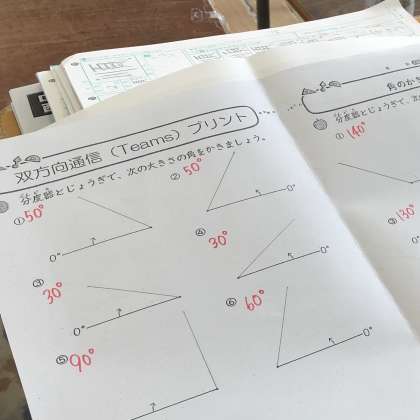 双方向通信（Teams）プリント
分度器とじょうぎで、次の大きさの角をかきましょう。
ぶんどき
① 50°
0°
② 50°
0°
③ 30°
0°
④ 30°
0°
⑤ 90°
⑥ 60°
0°
角のかき
分度器とじょうぎで、次
ぶんどき
① 140°
③ 130°
0°